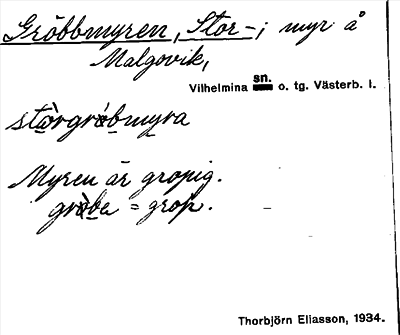 Gröbbmyren, Stor-; myr å
Malgovik,
Vilhelmina sn. o. tg. Västerb. l.
stòrgròbmyra
Myren är gropig.
gròbe = grop.
Thorbjörn Eliasson, 1934.